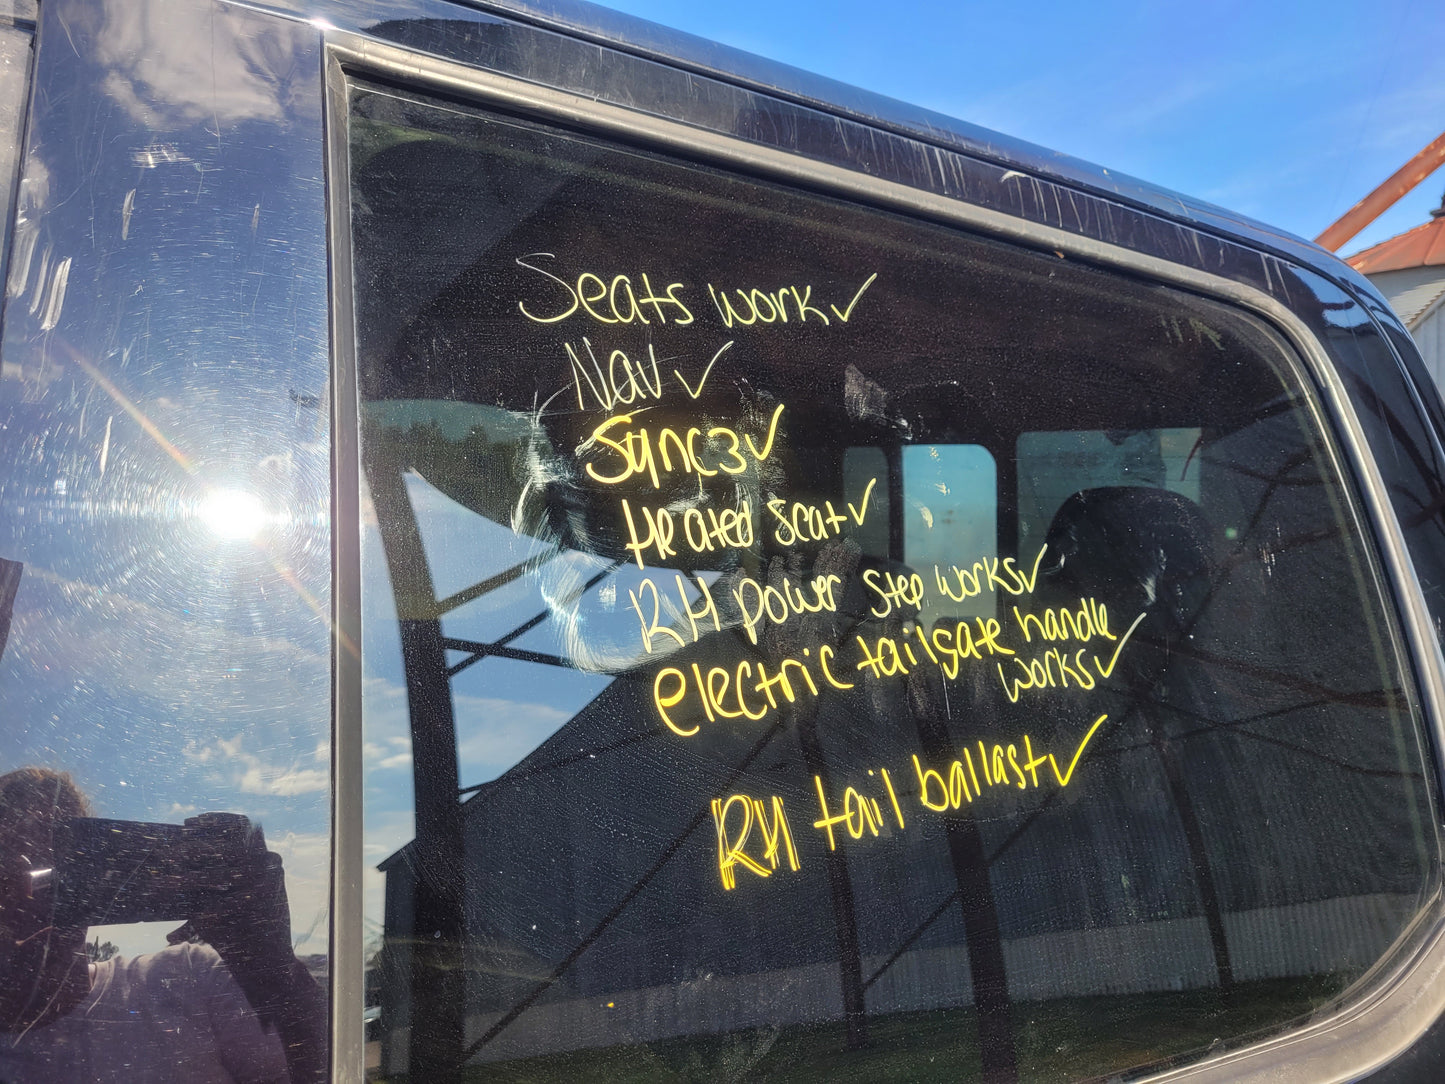 Seats work ✓
Nav ✓
Sync3 ✓
Heated seat ✓
RH power step works ✓
electric tailgate handle
works ✓
RH tail ballast ✓